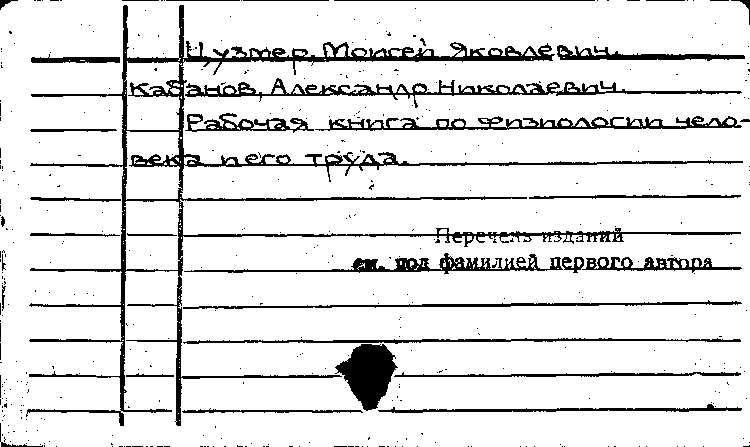 Цузмер, Моисей Яковлевич.
Кабанов, Александр Николаевич.
Рабочая книга по физиологии чело-
века и его труда.
Перечень изданий
см. под фамилией первого автора